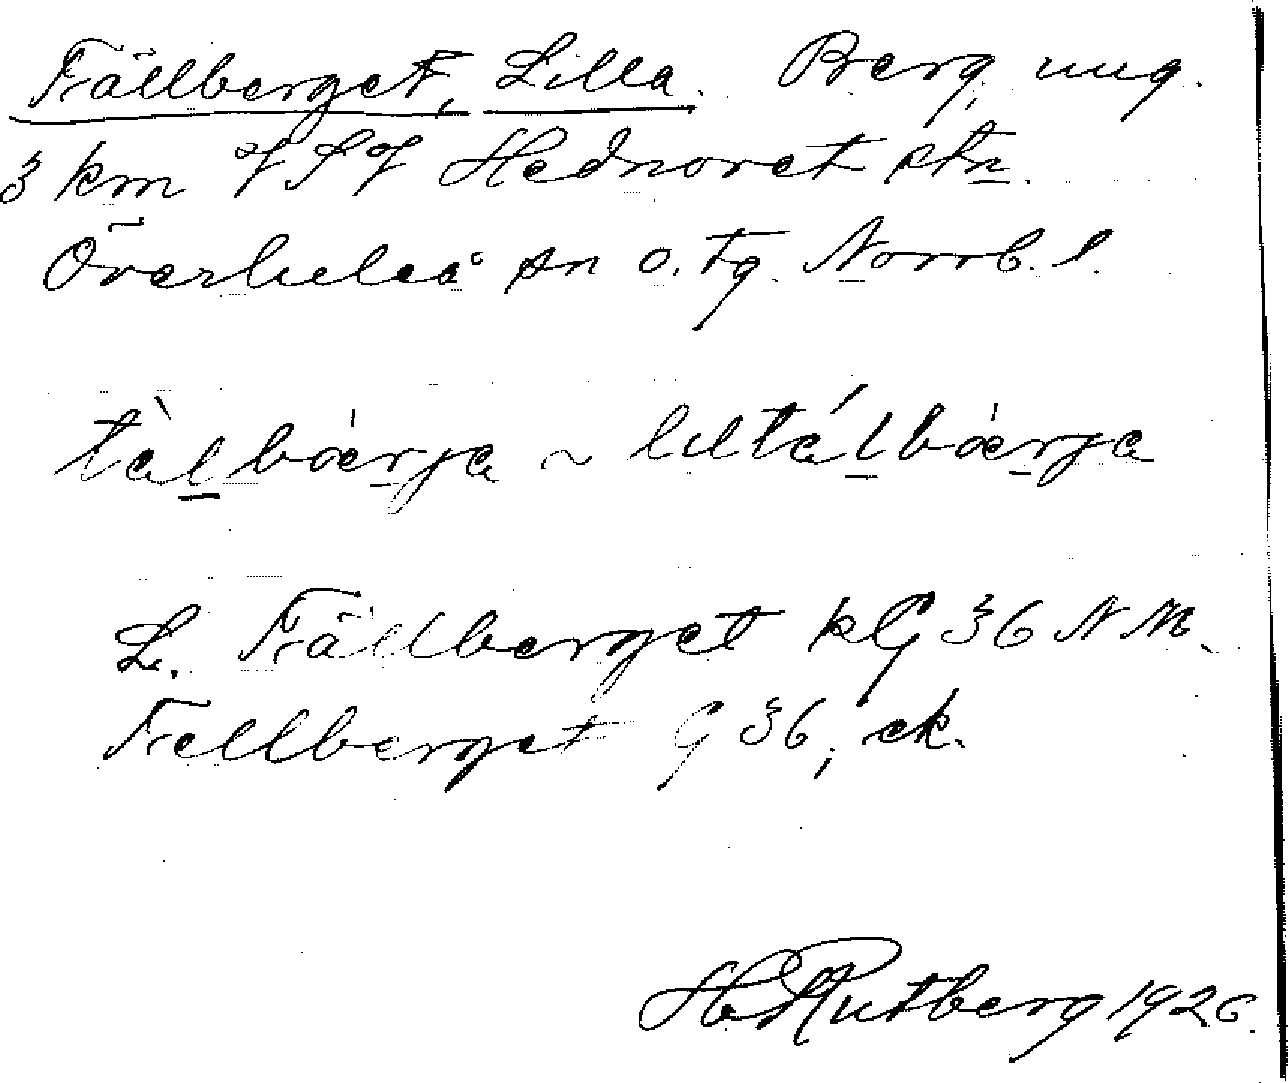 Tällberget, Lilla. Berg, ung.
3 km VSV Hednoret stn.
Överluleå sn o. tg. Norrb. l.
tàlbærja ~ liltálbærja
L. Tällberget kG 36 NM.
Tellberget G 36, ek.
H. Rutberg 1926.